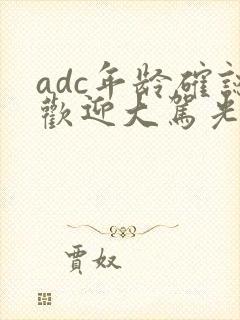 adc年龄確認
歡迎大駕光
賈奴